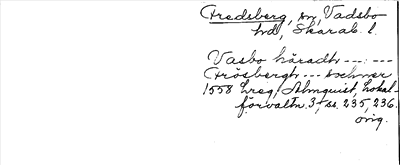 Fredsberg, sn, Vadsbo
hd, Skarab. l.
Vasbo häradh --- : ---
Frösbergh --- sochner
1558 hreg, Almquist, Lokal-
förvaltn. 3, s. 235, 236.
orig.